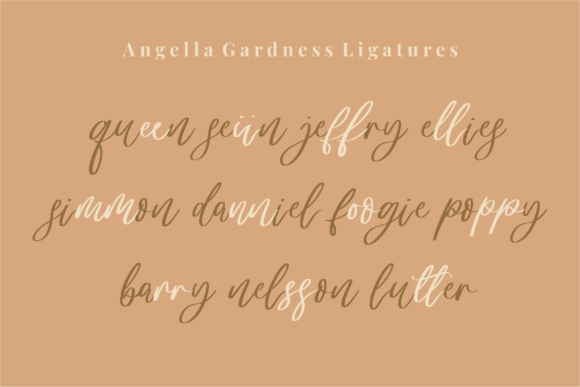 Angella Gardness Ligatures
queen seiin jeffry ellies
simmon danniel foogie poppy
barry nelsson lutter